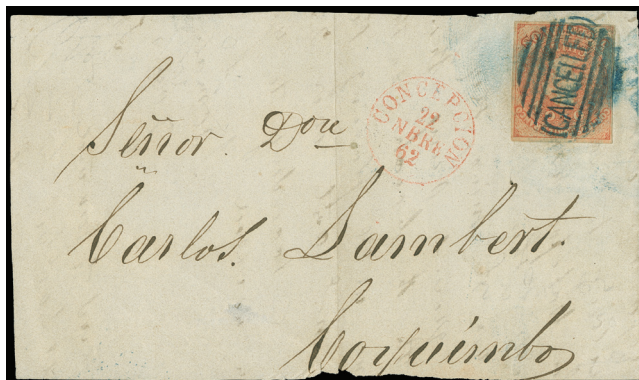 CANCELLED
CONCEPCION
22
NBRE
62
Señor. Don
Carlos. Lambert.
Coquimbo